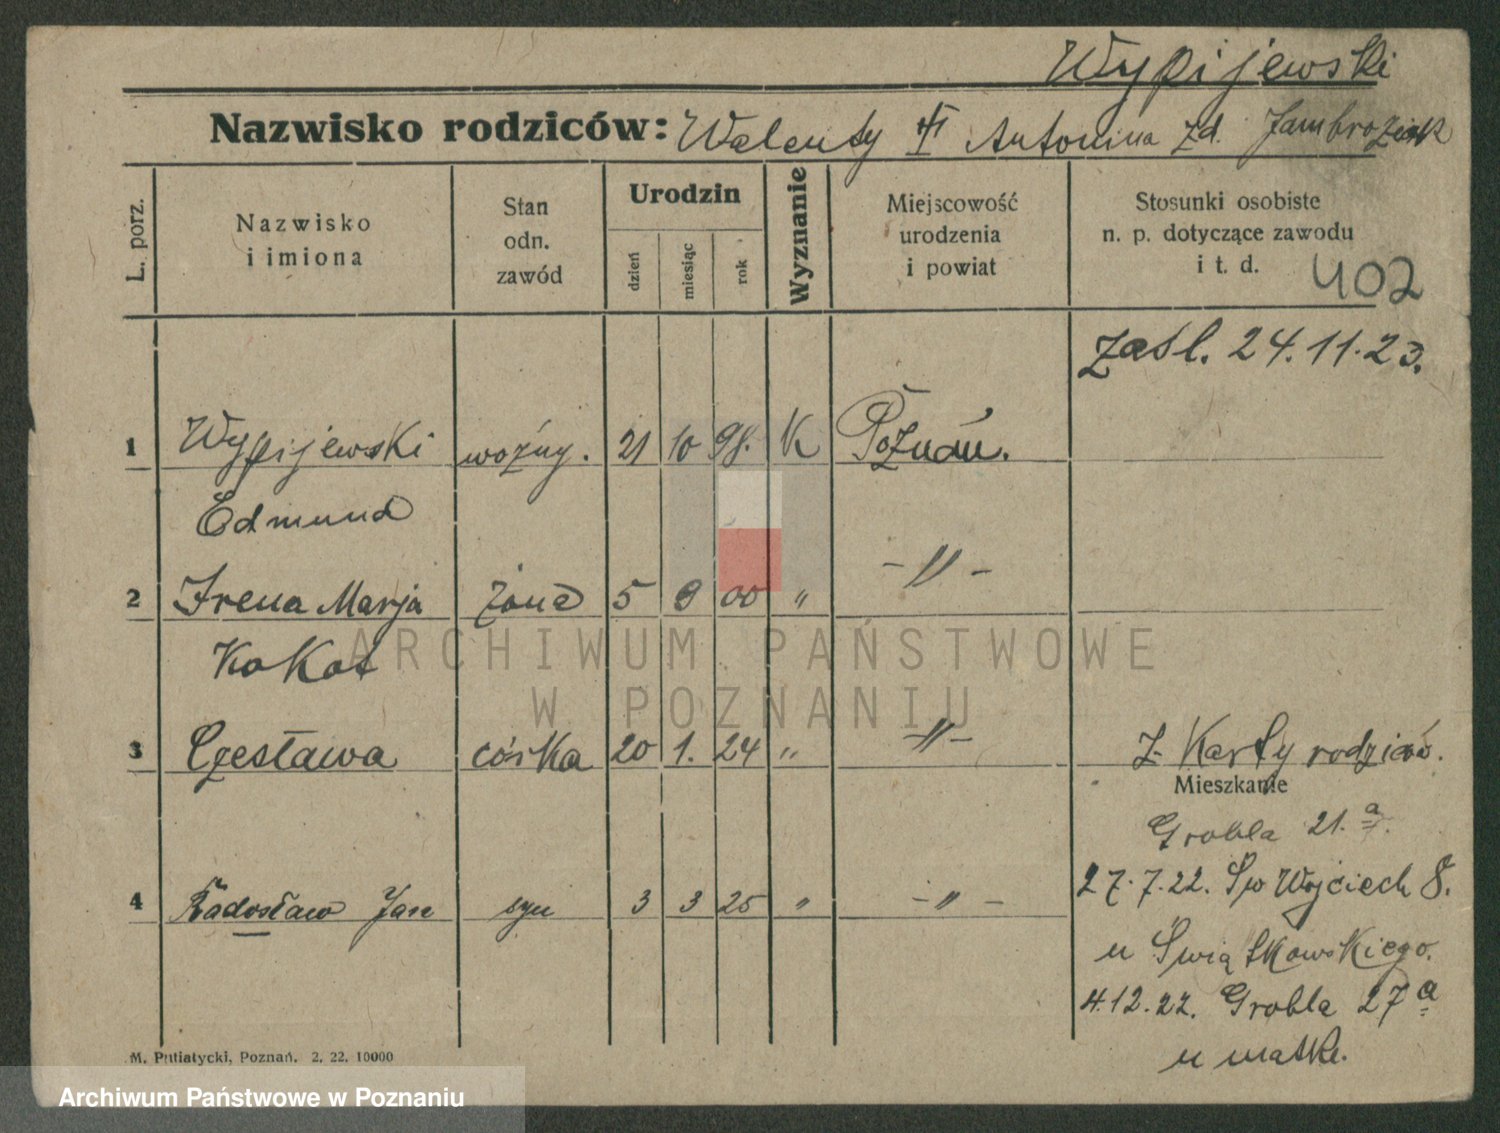 Wypijewski
Nazwisko rodziców: Walenty Antonina zd. Jambroziak
L. porz.
Nazwisko
i imiona
Stan
odn.
zawód
Urodzin
dzień
miesiąc
rok
Wyznanie
Miejscowość
urodzenia
i powiat
Stosunki osobiste
n. p. dotyczące zawodu
i t. d.
402
zaśl. 24.11.23.
1 Wypijewski woźny. 21 10 98. K Poznań.
Edmund
2 Irena Marja żona 5 00 „ -„-
Kokot
ARCHIWUM PAŃSTWOWE
W POZNANIU
3 Czesława córka 20 1. 24 „ -„- Z Karty rodziców.
Mieszkanie
Grobla 21.a
27.7.22. Św Wojciech 8.
4 Radosław Jan syn 3 3 25 „ -„-
u Świątkowskiego.
4.12.22. Grobla 27a
u matki.
M. Putiatycki, Poznań. 2. 22. 10000
Archiwum Państwowe w Poznaniu